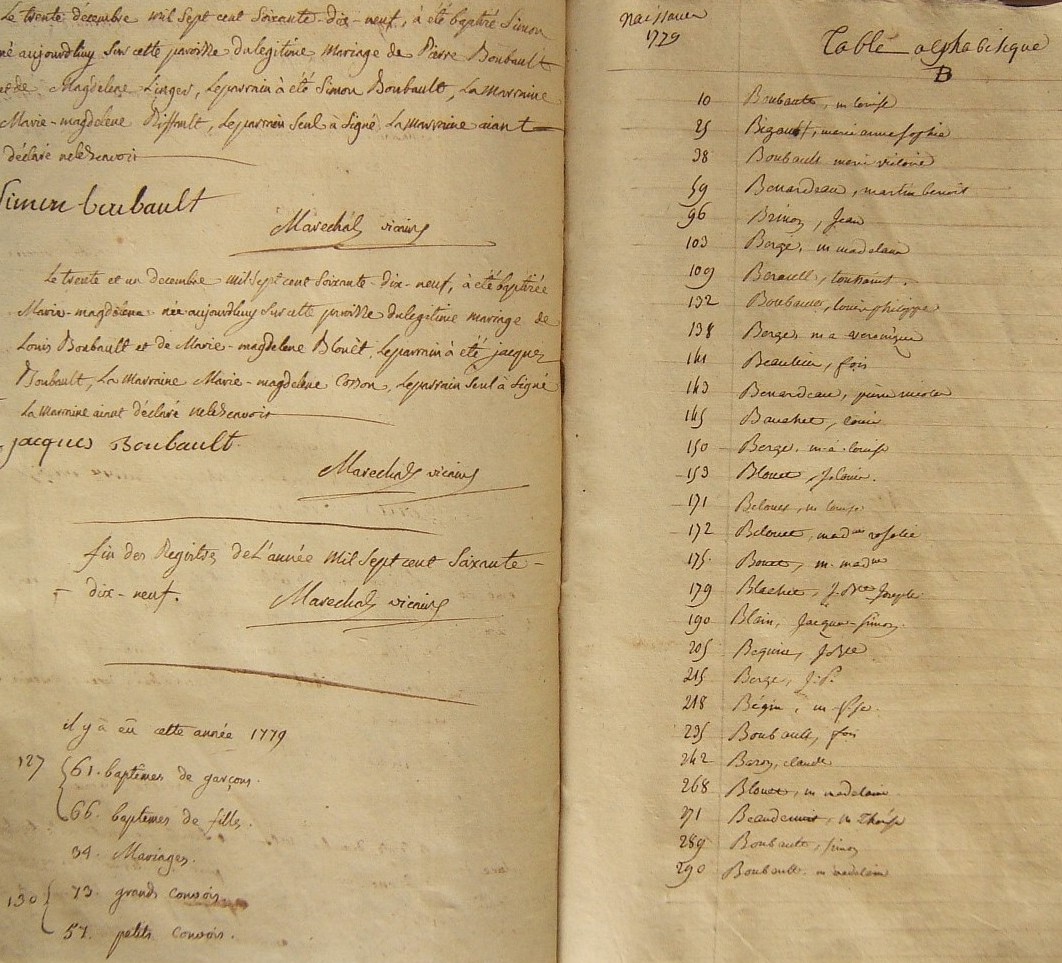 Le trente décembre mil sept cent soixante-dix-neuf, à été baptisé Simon
né aujourdhuy sur cette paroisse du legitime mariage de Pierre Boubault
et de Magdelene Linger, Le parrain à été Simon Boubault, La Marraine
Marie-magdelene Riffault, Le parrain seul à signé, La marraine aiant
déclaré ne le scavoir
Simon boubault
Marechal vicaire
Le trente et un decembre mil sept cent soixante-dix-neuf, à été baptisée
Marie-magdelene née aujourdhuy sur cette paroisse du legitime mariage de
Louis Boubault et de Marie-magdelene Blouët, Le parrain à été jacques
Boubault, La Marraine Marie-magdelene Cosson, Le parrain seul à signé
La marraine aiant déclaré ne le scavoir
jacques Boubault
Marechal vicaire
fin des Registres de L'année mil sept cent soixante-
- dix-neuf.
Marechal vicaire
il y a eü cette année 1779
127
61. baptêmes de garçons.
66. baptêmes de filles.
34. Mariages.
130
73. grands convois.
57. petits convois.
naissances
1779
Table alphabétique
B
10 Boubault, m louise
25 Bigault, marie anne sophie
38 Boubault marie victoire
59 Benardeau, martin benoit
96 Brinon, Jean
103 Bergé, m madelaine
109 Berault, toussaint.
132 Boubault, louis philippe
138 Berger m a veronique
141 Beaulieu, fois
143 Benardeau, pierre nicolas
145 Bauchet, louis
150 Berge, m.a. louise
153 Blouet, j. louis.
171 Belouet, m louise
172 Belouet, mad rosalie
175. Bouet, m. madne
179 Blachet, J. Bte Joseph
190 Blain, Jacques-simon.
205 Bequine, J Bte
215 Berge, J. P.
218 Bégin, m fse.
235 Boubault, fois
242 Baron, claude
268 Blouet, m madelaine.
271 m Thérèse
289 Boubault, simon
290 Boubault m madelaine